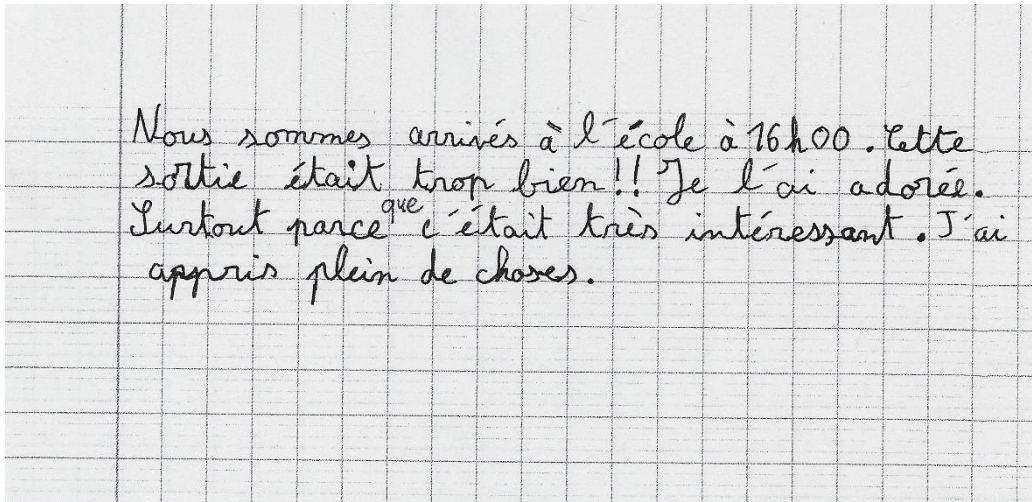 Nous sommes arrivés à l'école à 16h00. Cette
sortie était trop bien!! Je l'ai adorée.
Surtout parce que c'était très intéressant. J'ai
appris plein de choses.